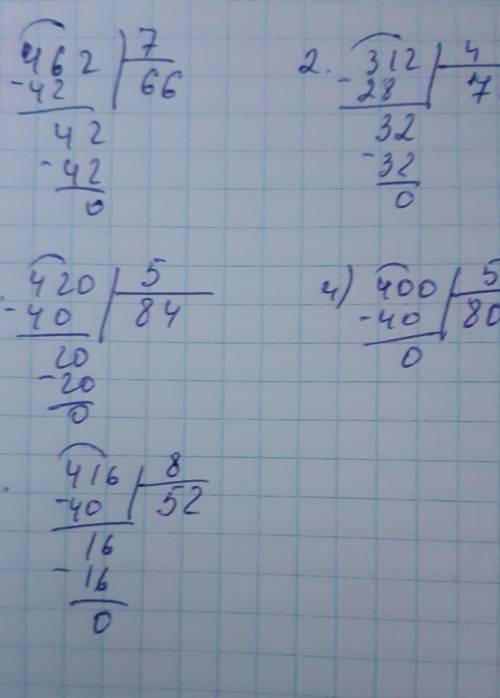 462 7
-42 66
42
-42
0
2. 312 4
-28 7
32
-32
0
420 5
-40 84
20
-20
0
4) 400 5
-40 80
0
416 8
-40 52
16
-16
0